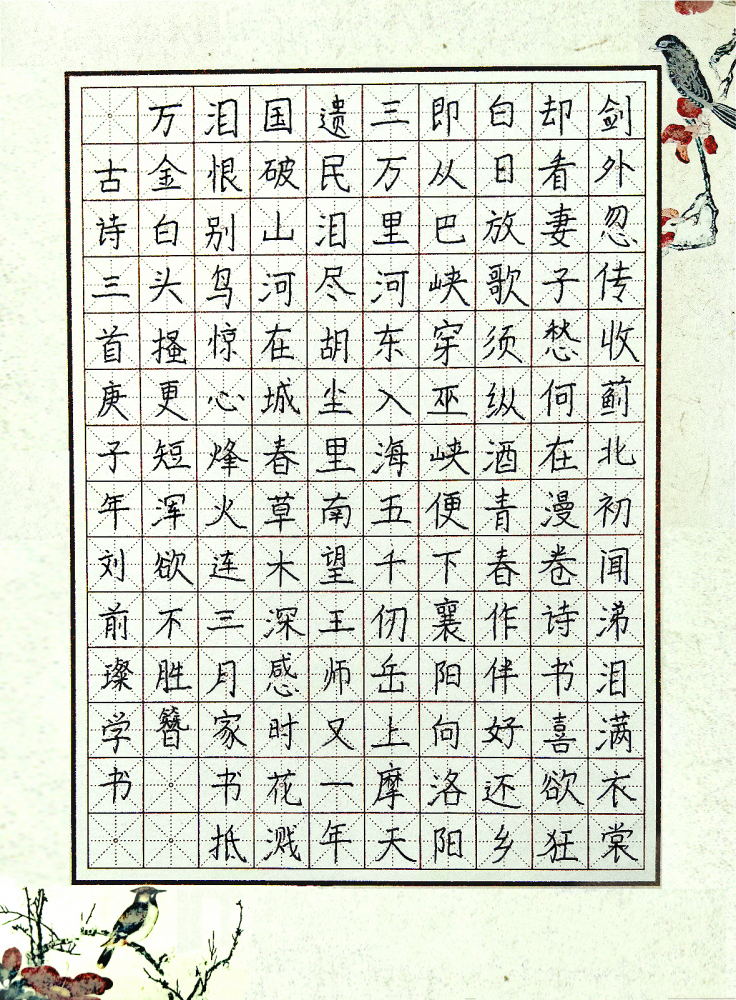 剑外忽传收蓟北初闻涕泪满衣裳
却看妻子愁何在漫卷诗书喜欲狂
白日放歌须纵酒青春作伴好还乡
即从巴峡穿巫峡便下襄阳向洛阳
三万里河东入海五千仞岳上摩天
遗民泪尽胡尘里南望王师又一年
国破山河在城春草木深感时花溅
泪恨别鸟惊心烽火连三月家书抵
万金白头搔更短浑欲不胜簪
古诗三首庚子年刘前璨学书